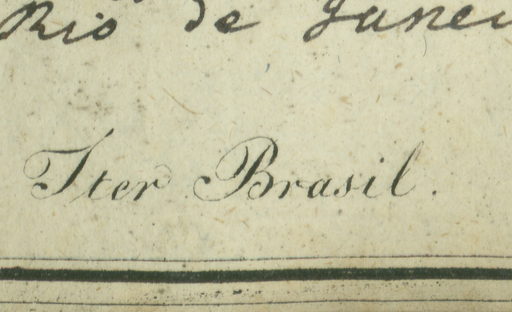 Rio de Janei
Iter Brasil.